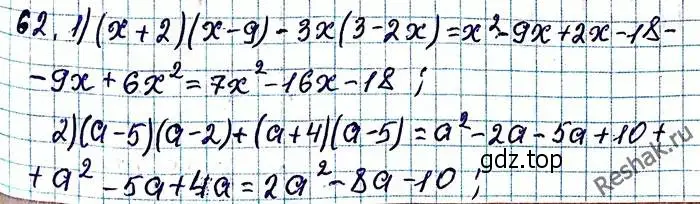 62. 1) (x+2)(x-9) - 3x(3-2x) = x²-9x+2x-18-
-9x+6x² = 7x²-16x-18 ;
2) (a-5)(a-2)+(a+4)(a-5) = a²-2a-5a+10+
+a²-5a+4a = 2a²-8a-10 ;
гдз.top
Reshak.ru